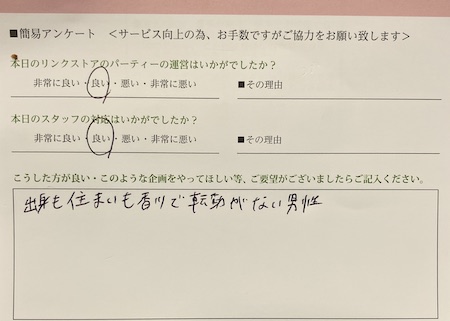 ■簡易アンケート　＜サービス向上の為、お手数ですがご協力をお願い致します＞
本日のリンクストアのパーティーの運営はいかがでしたか？
非常に良い・良い・悪い・非常に悪い　■その理由
本日のスタッフの対応はいかがでしたか？
非常に良い・良い・悪い・非常に悪い　■その理由
こうした方が良い・このような企画をやってほしい等、ご要望がございましたらご記入ください。
出身も住まいも香川で転勤がない男性